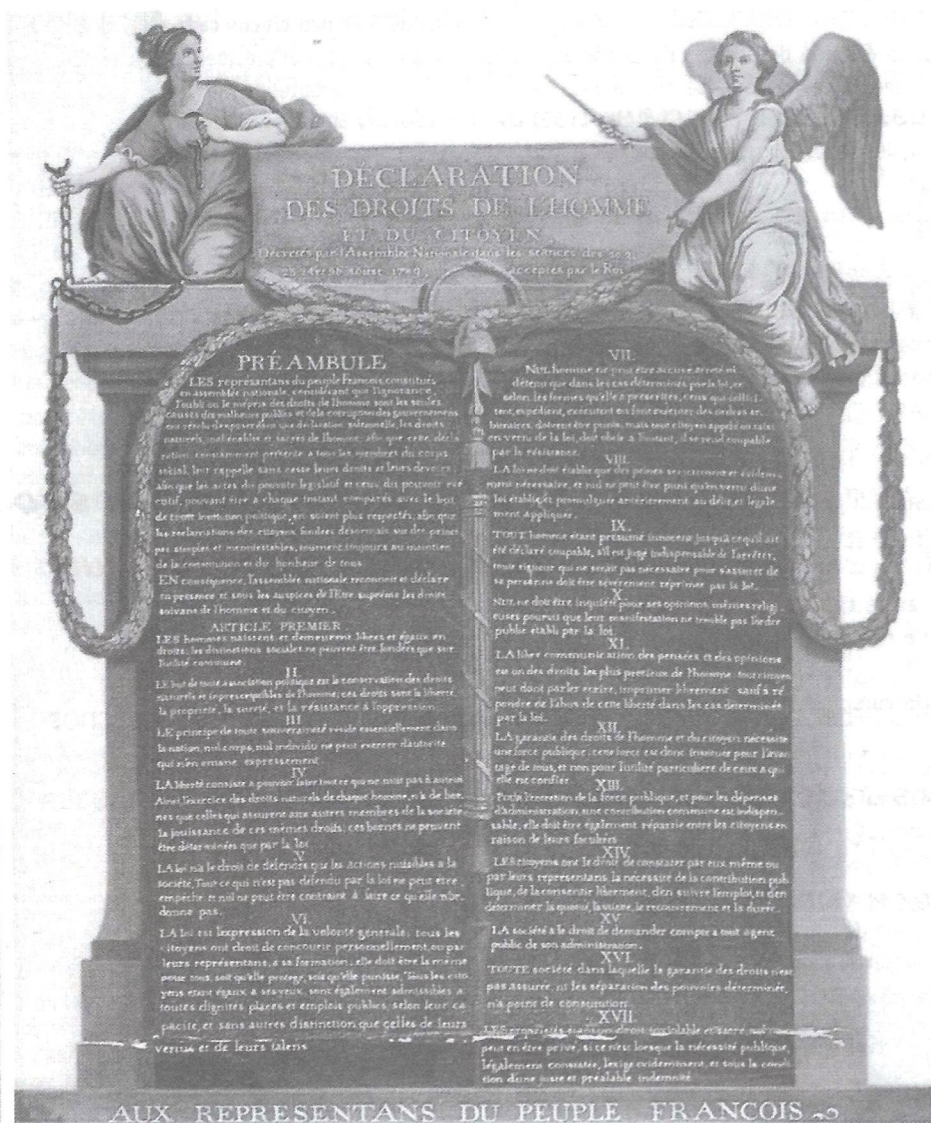 DÉCLARATION
DES DROITS DE L'HOMME
ET DU CITOYEN,
Décretés par l'Assemblée Nationale dans les séances des 20 21
23 24 et 26 aoust 1789, acceptés par le Roi
PRÉAMBULE
LES représentans du peuple François, constitués
en assemblée nationale, considérant que l'ignorance,
l'oubli ou le mépris des droits de l'homme sont les seules
causes des malheurs publics et de la corruption des gouvernemens
ont résolu d'exposer dans une déclaration solemnelle, les droits
naturels, inaliénables et sacrés de l'homme; afin que cette décla
ration, constamment présente a tous les membres du corps
social, leur rappelle sans cesse leurs droits et leurs devoirs;
afin que les actes du pouvoir législatif et ceux du pouvoir exé
cutif, pouvant être a chaque instant comparés avec le but
de toute institution politique, en soient plus respectés; afin que
les reclamations des citoyens fondées désormais sur des princi
pes simples et incontestables, tournent toujours au maintien
de la constitution et du bonheur de tous.
EN conséquence, l'assemblée nationale reconnoit et déclare
en presence et sous les auspices de l'Etre suprême les droits
suivans de l'homme et du citoyen.
ARTICLE PREMIER.
LES hommes naissent et demeurent libres et égaux en
droits; les distinctions sociales ne peuvent être fondées que sur
l'utilité commune.
II.
LE but de toute association politique est la conservation des droits
naturels et inprescriptibles de l'homme; ces droits sont la liberté,
la propriété, la sureté, et la résistance à l'oppression.
III
LE principe de toute souveraineté réside essentiellement dans
la nation, nul corps, nul individu ne peut exercer d'autorité
qui n'en émane expressement
IV
LA liberté consiste a pouvoir faire tout ce qui ne nuit pas à autrui
Ainsi, l'exercice des droits naturels de chaque homme, n'a de bor
nes que celles qui assurent aux autres membres de la société
la jouissance de ces mêmes droits; ces bornes ne peuvent
être déterminées que par la loi
V
LA loi n'a le droit de défendre que les actions nuisibles a la
société, Tout ce qui n'est pas défendu par la loi ne peut être
empêché et nul ne peut être contraint à faire ce qu'elle n'or
donne pas.
VI.
LA loi est l'expression de la volonté générale; tous les
citoyens ont droit de concourir personnellement, ou par
leurs représentans, à sa formation; elle doit être la même
pour tous, soit qu'elle protege, soit qu'elle punisse, Tous les cito
yens étant égaux à ses yeux, sont également admissibles a
toutes dignités, places et emplois publics, selon leur ca
pacité, et sans autres distinction que celles de leurs
vertus et de leurs talens
VII.
NUL homme ne peut être accusé, arreté ni
détenu que dans les cas déterminés par la loi, et
selon les formes qu'elle a prescrites, ceux qui sollici
tent, expédient, exécutent ou font exécuter des ordres ar
bitraires, doivent être punis; mais tout citoyen appelé ou saisi
en vertu de la loi, doit obéir a l'instant, il se rend coupable
par la résistance.
VIII.
LA loi ne doit établir que des peines strictement et évidem
ment nécessaire, et nul ne peut être puni qu'en vertu d'une
loi établie et promulguée antérierement au délit, et légale
ment appliquée.
IX.
TOUT homme étant présumé innocent jusqu'à ce qu'il ait
été déclaré coupable, s'il est jugé indispensable de l'arrêter,
toute rigueur qui ne serait pas nécessaire pour s'assurer de
sa personne doit être sévèrement reprimée par la loi.
X.
NUL ne doit être inquiété pour ses opinions, mêmes religi
euses pourvu que leur manifestation ne trouble pas l'ordre
public établi par la loi.
XI.
LA libre communication des pensées et des opinions
est un des droits les plus precieux de l'homme; tout citoyen
peut dont parler ecrire, imprimer librement, sauf à ré
pondre de l'abus de cette liberté dans les cas déterminés
par la loi.
XII.
LA garantie des droits de l'homme et du citoyen nécessite
une force publique; cette force est donc instituée pour l'avan
tage de tous, et non pour l'utilité particuliere de ceux a qui
elle est confiée.
XIII.
POUR l'entretien de la force publique, et pour les dépenses
d'administration, une contribution commune est indispen
sable; elle doit être également répartie entre les citoyens en
raison de leurs facultés
XIV.
LES citoyens ont le droit de constater par eux même ou
par leurs représentans, la nécessité de la contribution pub
lique, de la consentir librement, d'en suivre l'emploi, et d'en
déterminer la quotité, l'assiette, le recouvrement et la durée.
XV.
LA société a le droit de demander compte a tout agent
public de son administration.
XVI.
TOUTE société, dans laquelle la garantie des droits n'est
pas assurée, ni les séparation des pouvoirs déterminée,
n'a point de constitution
XVII.
LES propriétés étant un droit inviolable et sacré, nul ne
peut en être privé, si ce n'est lorsque la nécessité publique,
légalement constatée, l'exige évidemment, et sous la condi
tion d'une juste et préalable indemnité
AUX REPRESENTANS DU PEUPLE FRANCOIS